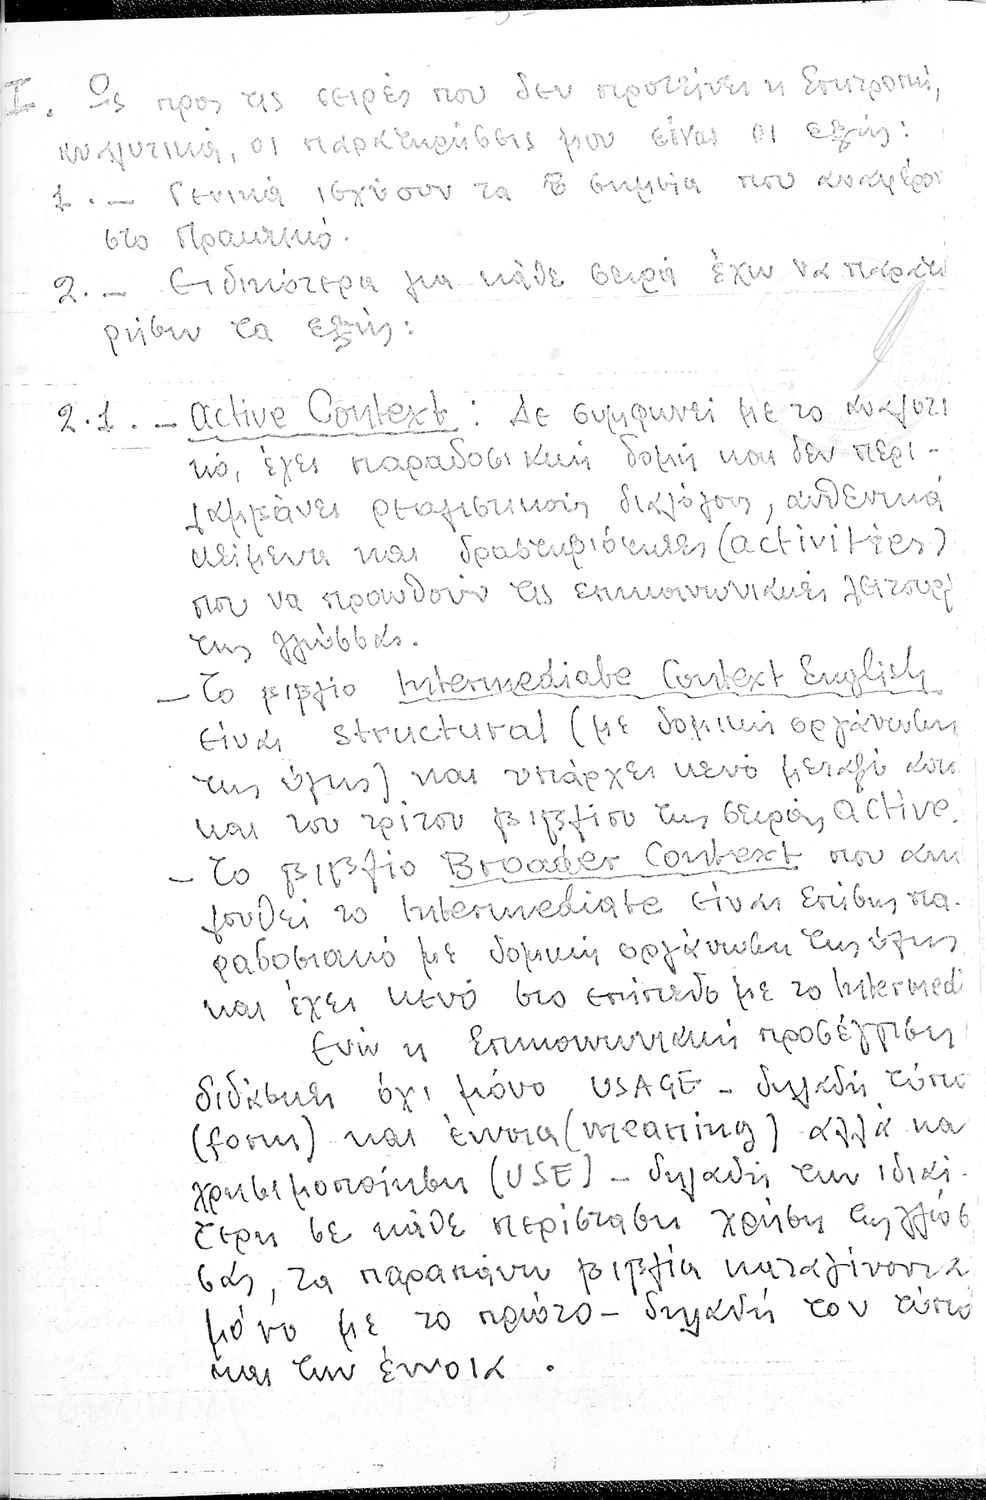 - 5 -
I. Ως προς τις σειρές που δεν προτείνει η Επιτροπή,
αναλυτικά, οι παρατηρήσεις μου είναι οι εξής:
1. – Γενικά ισχύουν τα σημεία που αναφέρον
στο Πρακτικό.
2. – Ειδικότερα για κάθε σειρά έχω να παρατη
ρήσω τα εξής:
2.1. – Active Context: Δε συμφωνεί με το αναλυτι
κό, έχει παραδοσιακή δομή και δεν περι-
λαμβάνει ρεαλιστικούς διαλόγους, αυθεντικά
κείμενα και δραστηριότητες (activities)
που να προωθούν τις επικοινωνιακές λειτουργ
της γλώσσας.
– Το βιβλίο Intermediate Context English
είναι structural (με δομική οργάνωση
της ύλης) και υπάρχει κενό μεταξύ αυτ
και του τρίτου βιβλίου της σειράς active.
– Το βιβλίο Broader Context που ακο
λουθεί το Intermediate είναι επίσης πα-
ραδοσιακό με δομική οργάνωση της ύλης
και έχει κενό στο επίπεδο με το Intermedi
Ενώ η Επικοινωνιακή προσέγγιση
διδάσκει όχι μόνο USAGE – δηλαδή τύπο
(form) και έννοια (meaning) αλλά και
χρησιμοποίηση (USE) – δηλαδή την ιδιαί-
τερη σε κάθε περίσταση χρήση της γλώσ
σας, τα παραπάνω βιβλία καταγίνονται
μόνο με το πρώτο – δηλαδή τον τύπο
και την έννοια.